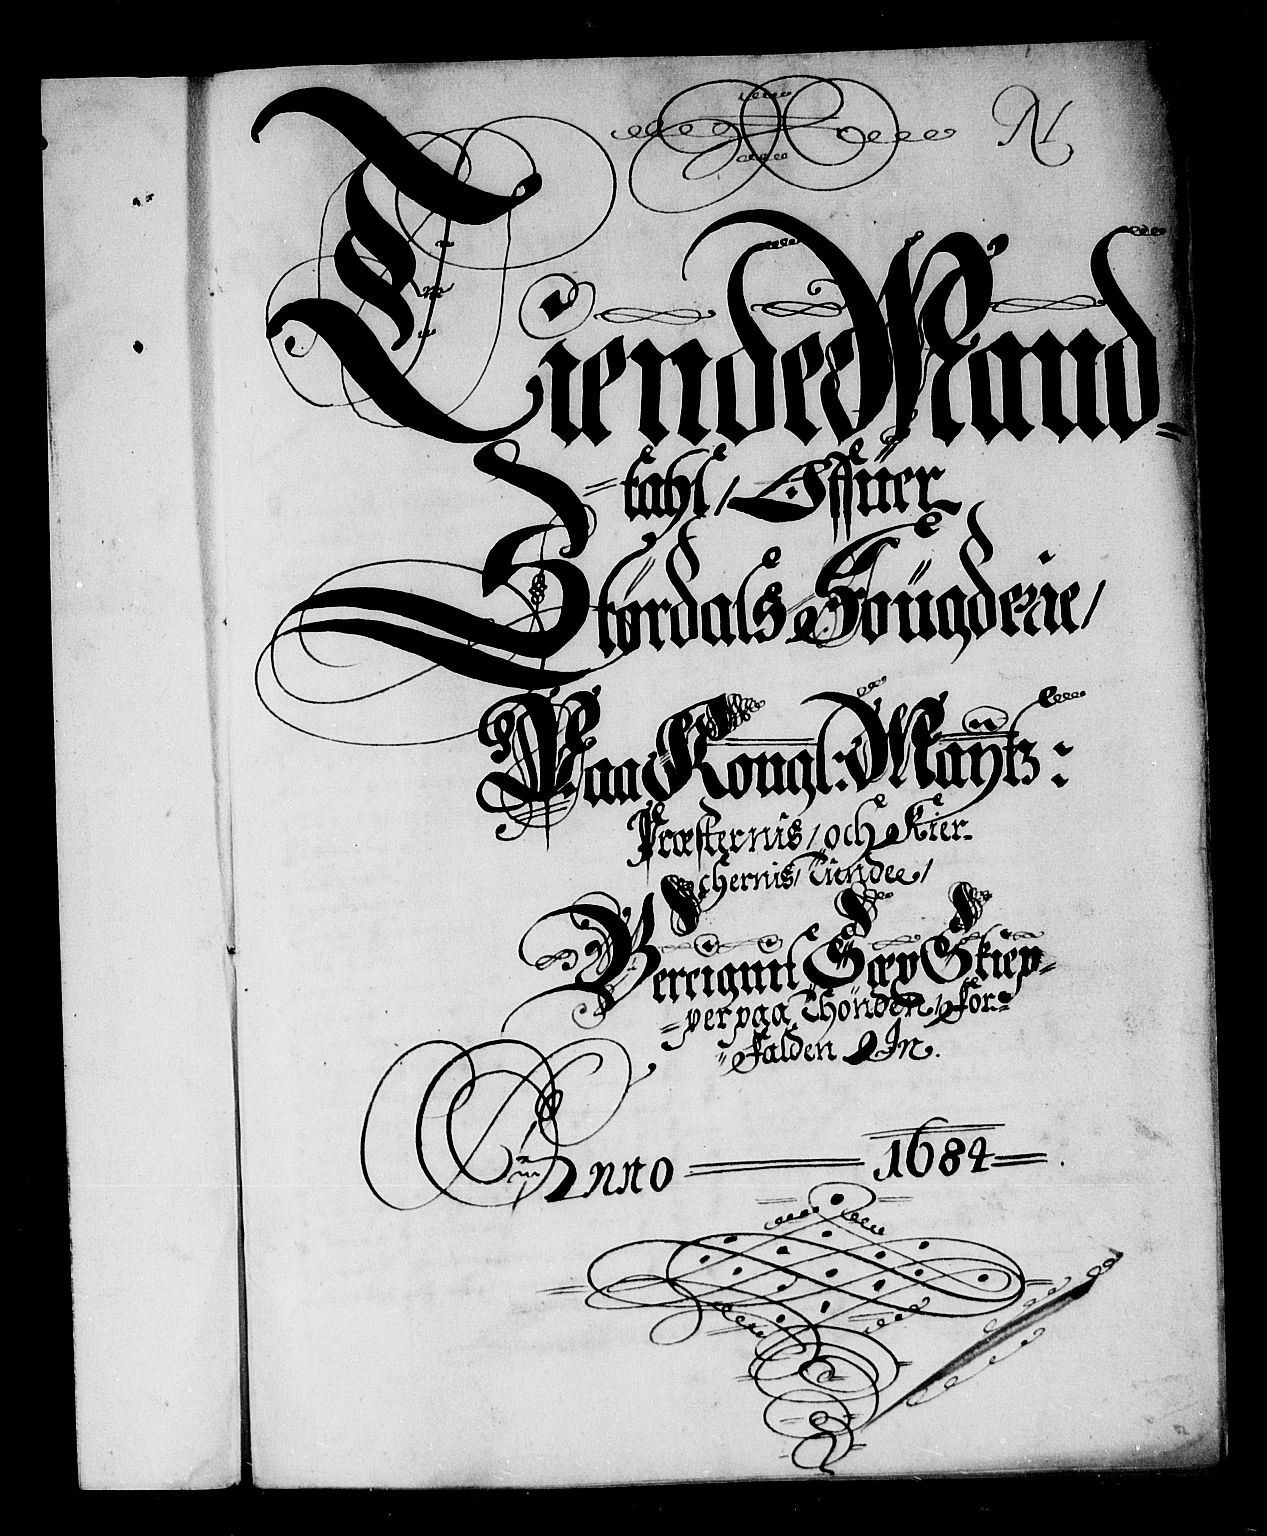 N
TiendeMand-
=tahl/ Offuer
Størdals Fougderie/
Paa Kongl: Maÿtz:
Præsternis/ och Kier-
chernis/ Tiendee/
Bereignit Sæx Skiep-
=per paa Thönden/ For-
=falden In.
Anno 1684